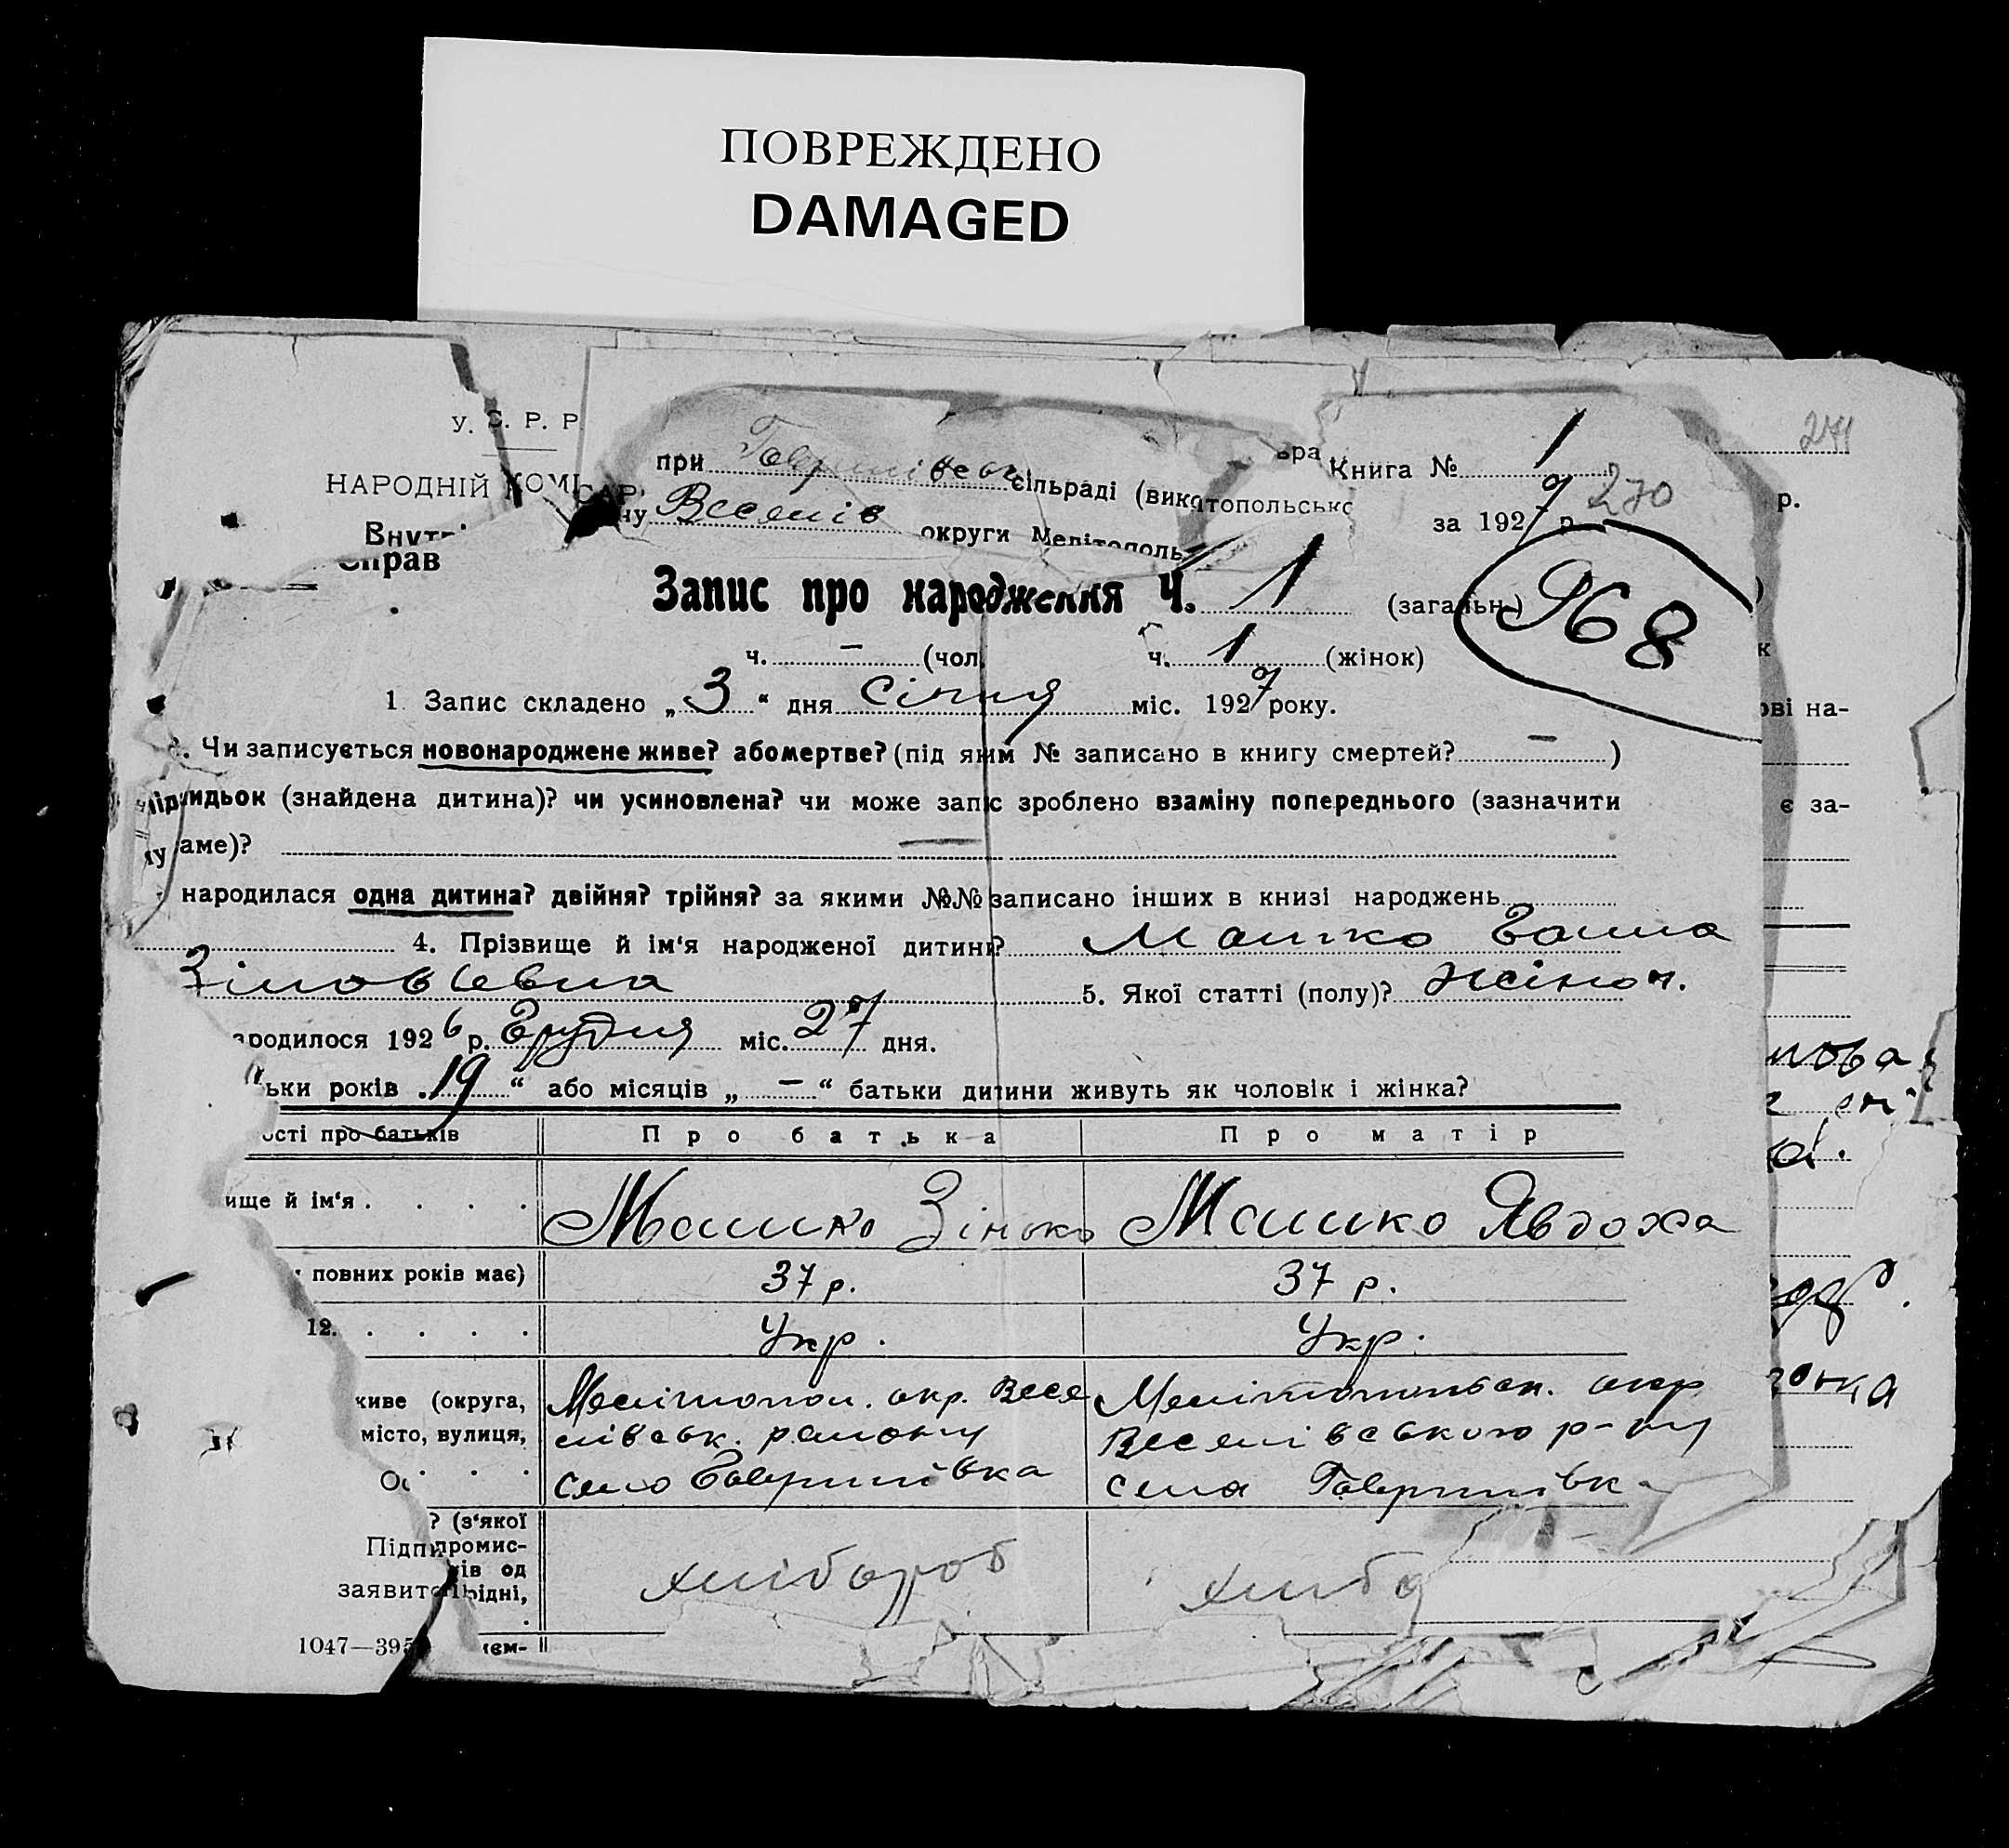 ПОВРЕЖДЕНО
DAMAGED
У. С. Р. Р
НАРОДНІЙ КОМІСАР
Внут
Справ
при Гаврилівськ сільраді (вик
Веселів округи Мелітополь
Книга № 1
за 1927 р. 270
271
р.
968
Запис про народження Ч. 1 (загальн.)
ч. – (чол. ч. 1 (жінок)
1. Запис складено „3“ дня Січня міс. 1927 року.
Чи записується новонароджене живе? або мертве? (під яким № записано в книгу смертей? – )
підкидьок (знайдена дитина)? чи усиновлена? чи може запис зроблено взаміну попереднього (зазначити
аме)? —
народилася одна дитина? двійня? трійня? за якими №№ записано інших в книзі народжень
4. Прізвище й ім‘я народженої дитини? Машко Ганна
Зіновьевна 5. Якої статті (полу)? Жіноч.
ародилося 1926 р. Грудня міс. 27 дня.
ьки років „19“ або місяців „–“ батьки дитини живуть як чоловік і жінка?
ості про батьків Про батька Про матір
ище й ім‘я Машко Зінько Машко Явдоха
повних років має) 37 р. 37 р.
12. Укр. Укр.
живе (округа, Мелітопол. окр. Весе Мелітопольск. окр
місто, вулиця, лівськ. району Веселівського р-ну
село Гаврилівка села Гаврилівк
? (з‘якої
Підпи промис-
ів од хлібороб хлібо
заявите рідні,
1047—395 ієм-
ові на-
є за-